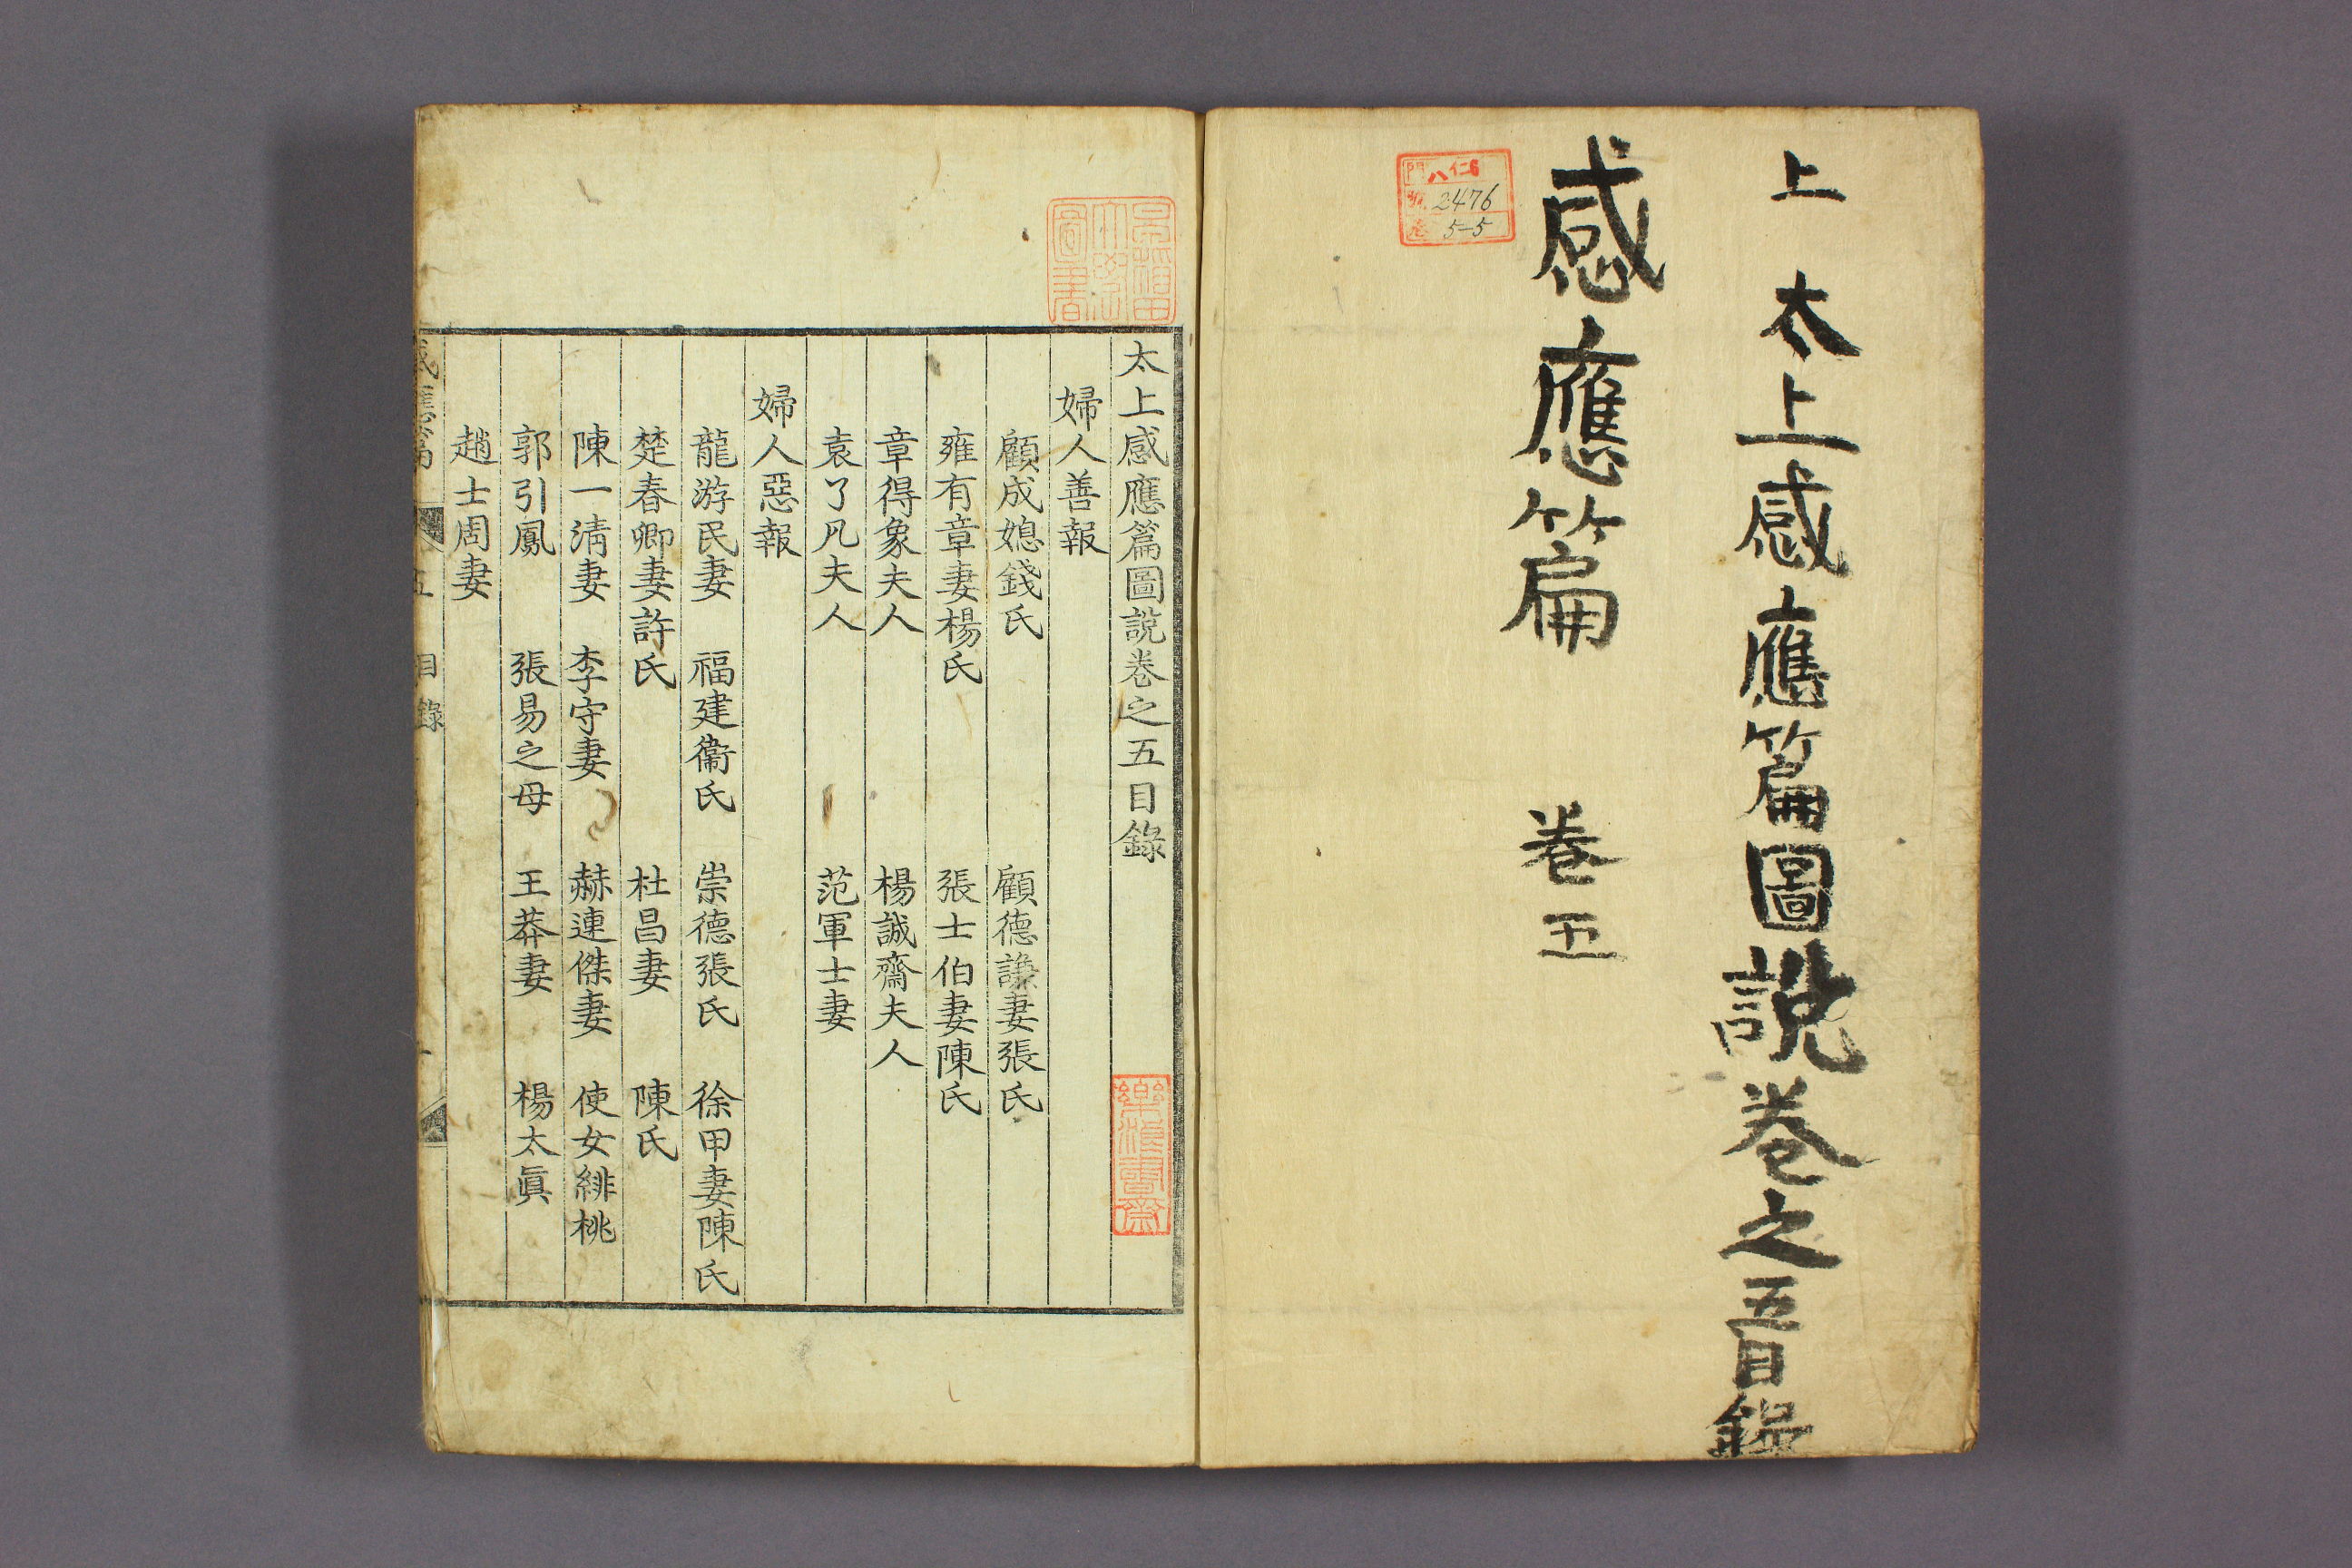 上 太上感應篇圖說卷之五目錄
感應篇 卷五
門 八仁6
號 2476
卷 5-5
早稲田大學圖書
太上感應篇圖說卷之五目錄
樂浪書齋
婦人善報
顧成媳錢氏 顧德謙妻張氏
雍有章妻楊氏 張士伯妻陳氏
章得象夫人 楊誠齋夫人
袁了凡夫人 范軍士妻
婦人惡報
龍游民妻 福建衞氏 崇德張氏 徐甲妻陳氏
楚春卿妻許氏 杜昌妻 陳氏
陳一清妻 李守妻 赫連傑妻 使女緋桃
郭引鳳 張易之母 王莽妻 楊太眞
趙士周妻
感應篇 五 目錄 一